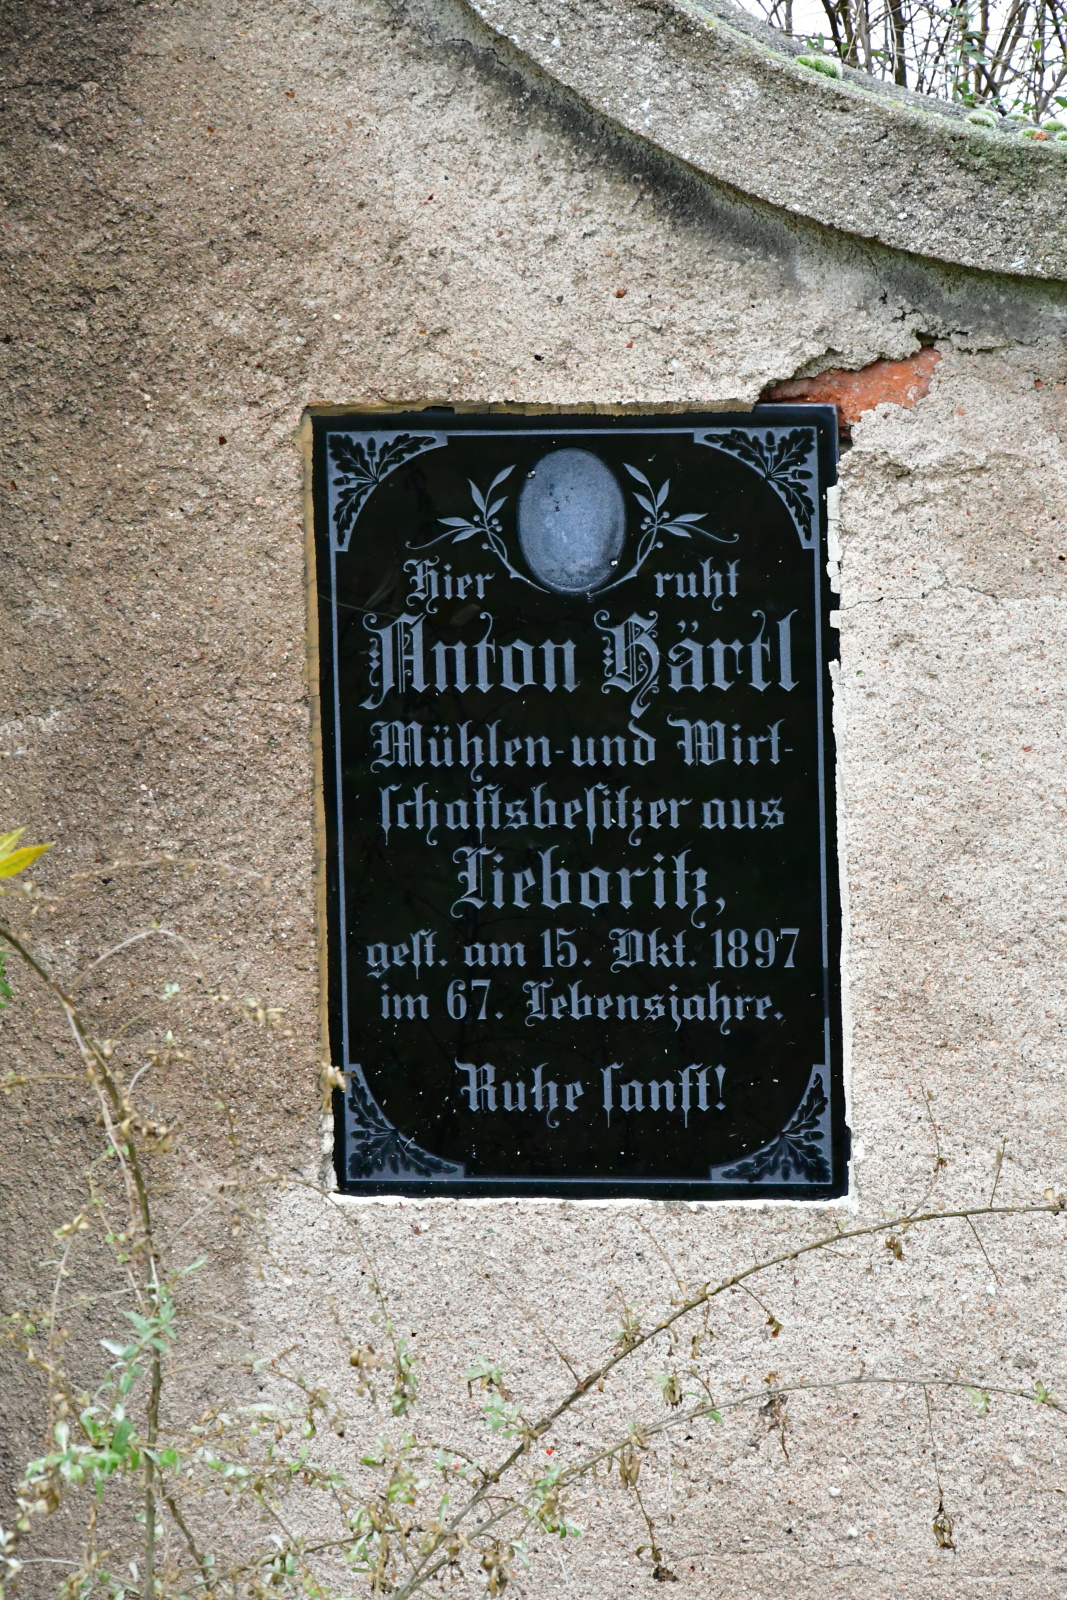 Hier ruht
Anton Härtl
Mühlen-und Wirt-
schaftsbesitzer aus
Lieboritz,
gest. am 15. Okt. 1897
im 67. Lebensjahre.
Ruhe sanft!